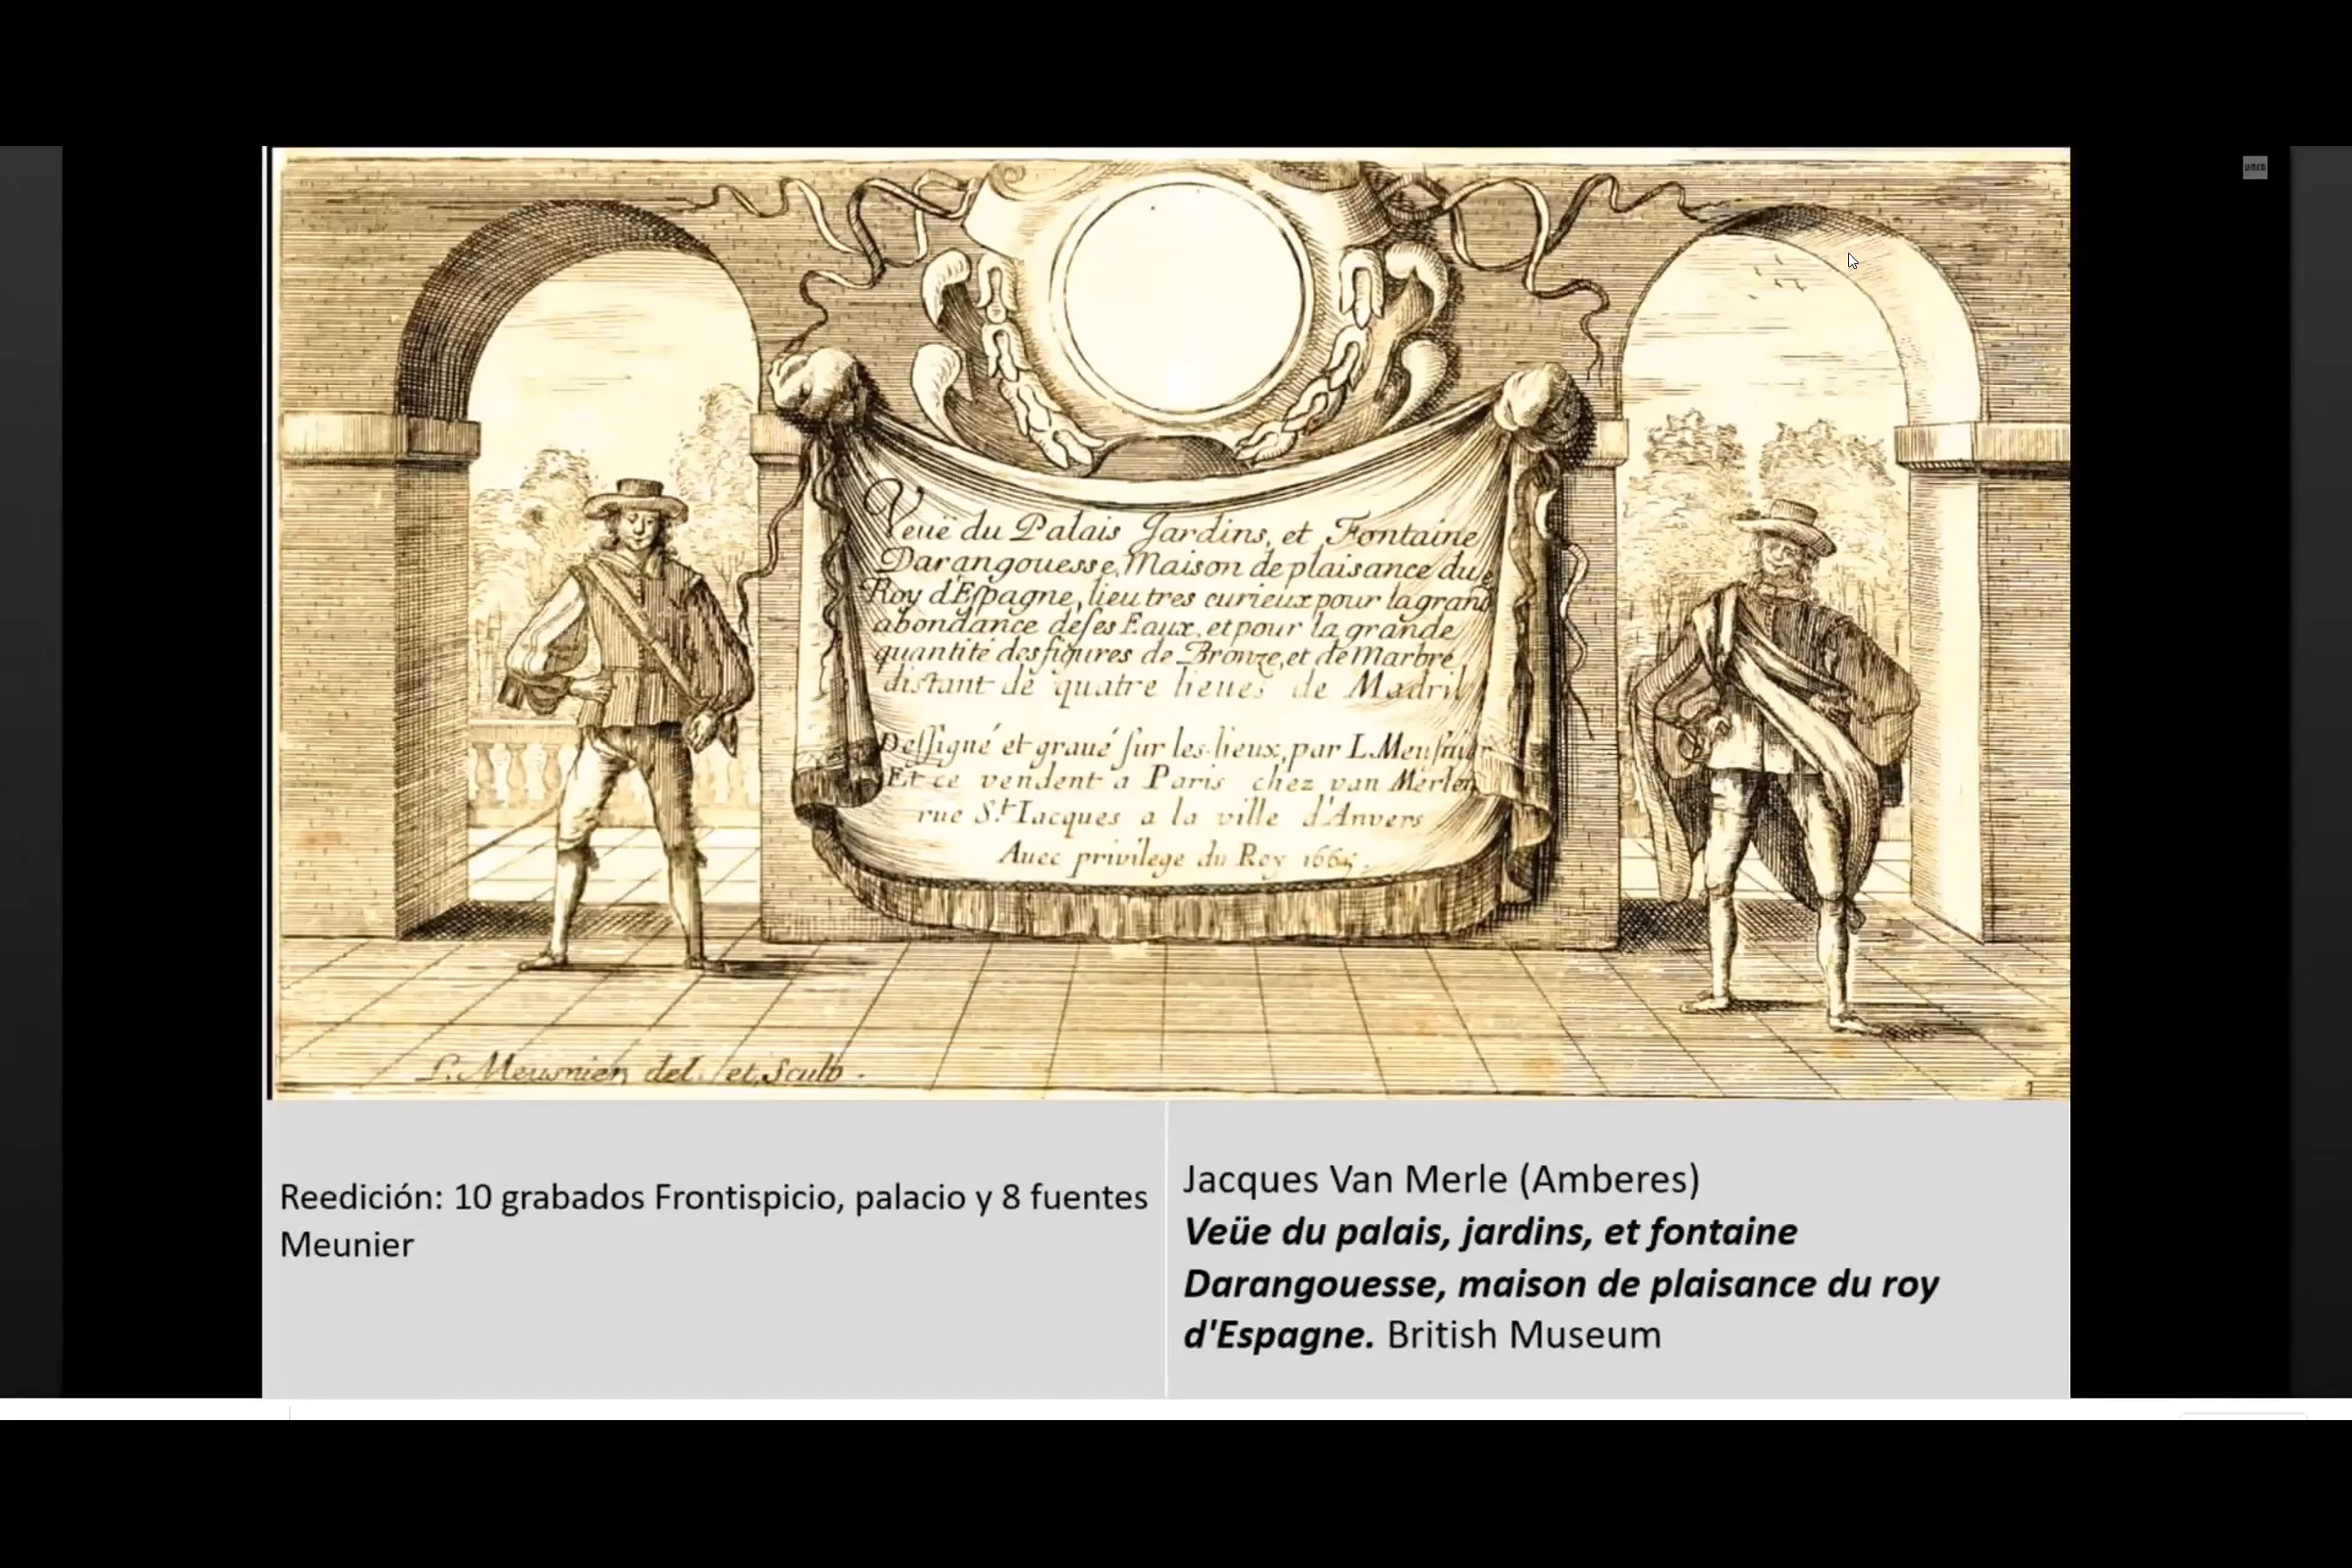 Veuë du Palais Jardins, et Fontaine
Darangouesse, Maison de plaisance du
Roy d'Espagne, lieu tres curieux pour la grand
abondance de ses Eaux, et pour la grande
quantité des figures de Bronze, et de Marbre,
distant de quatre lieues de Madril
Dessigné et graué sur les lieux, par L. Meusnier
Et ce vendent a Paris chez van Merlen
rue St. Iacques a la ville d'Anvers
Auec privilege du Roy 1665.
L. Meusnier del. et Sculp.
1
Reedición: 10 grabados Frontispicio, palacio y 8 fuentes
Meunier
Jacques Van Merle (Amberes)
Veüe du palais, jardins, et fontaine
Darangouesse, maison de plaisance du roy
d'Espagne. British Museum